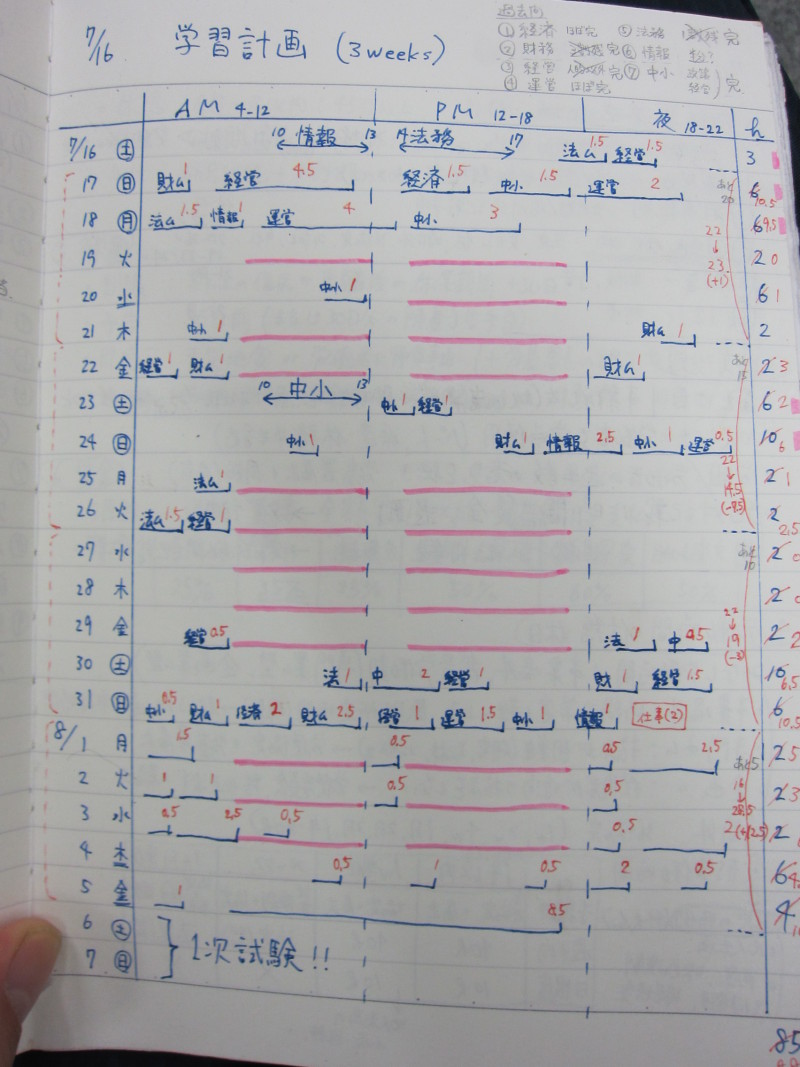 過去問
① 経済 ほぼ完 ⑤ 法務 完
7/16 学習計画 (3weeks) ② 財務 完 ⑥ 情報
③ 経営 完 ⑦ 中小 政策 完
④ 運営 ほぼ完
AM 4-12 PM 12-18 夜 18-22 h
7/16 土 10 情報 13 14 法務 17 法ム 1.5 経営 1.5 3
17 日 財ム 1 経営 4.5 経済 1.5 中小 1.5 運営 2 あと20 6 10.5
18 月 法ム 1.5 情報 1 運営 4 中小 3 22 6 9.5
19 火 ↓ 23 (+1) 2 0
20 水 中小 1 6 1
21 木 中小 1 財ム 1 2
22 金 経営 1 財ム 1 財ム 1 あと15 2 3
23 土 10 中小 13 中小 1 経営 1 6 2
24 日 中小 1 財ム 1 情報 2.5 中小 1 運営 0.5 10 6
25 月 法ム 1 22 ↓ 14.5 2 1
26 火 法ム 1.5 経営 1 2 2.5
27 水 あと10 2 0
28 木 2 0
29 金 経営 0.5 法 1 中 0.5 22 ↓ 19 (-3) 2 2
30 土 法 1 中 2 経営 1 財 1 経営 1.5 10 6.5
31 日 中小 0.5 財ム 1 2 財ム 2.5 1 運営 1.5 中小 1 情報 1 仕事(2) 6 10.5
8/1 月 1.5 0.5 0.5 2.5 あと5 2 5
2 火 1 1 0.5 0.5 16 ↓ 2 3
3 水 0.5 2.5 0.5 0.5 2 2
4 木 0.5 1 0.5 2 0.5 6
5 金 1 8.5 4
6 土
7 日 1次試験!!
85